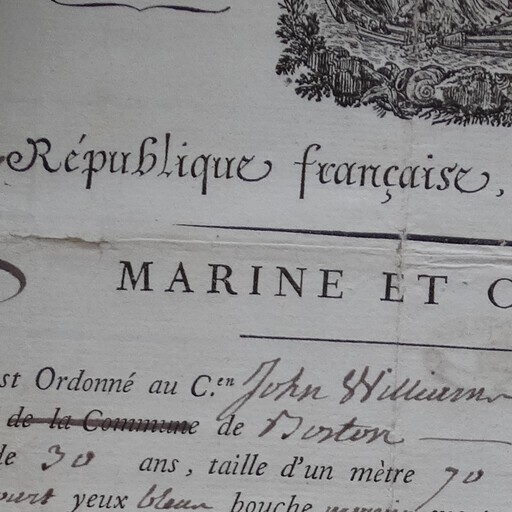 République française,
MARINE ET C
st Ordonné au C.en John Williams
de la Commune de Boston
de 30 ans, taille d'un mètre 70
yeux bleux bouche